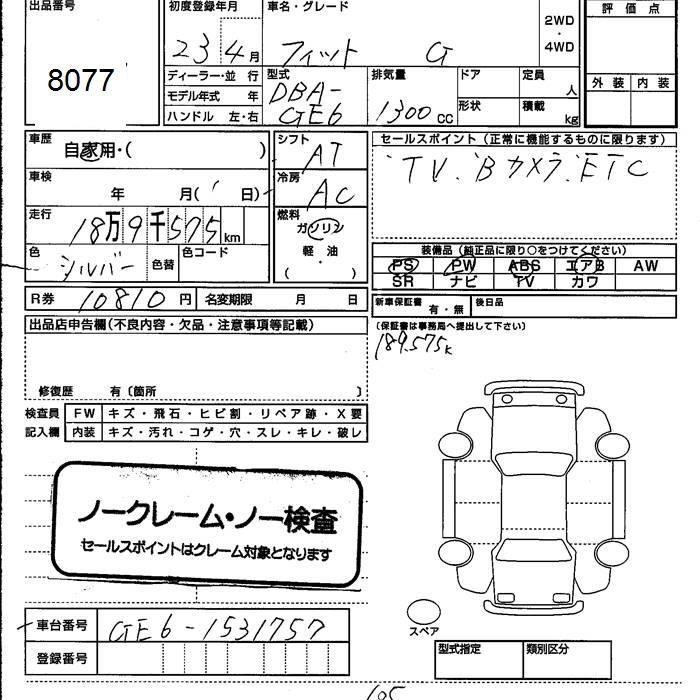 出品番号 初度登録年月 車名・グレード 2WD・4WD 評価点
8077 23 4月 フィット G
ディーラー・並行 型式 排気量 ドア 定員 人 外装 内装
モデル年式 年 DBA- 形状 積載 kg
ハンドル 左・右 GE6 1300 CC
車歴 自家用・( ) シフト AT セールスポイント(正常に機能するものに限ります)
車検 年 月( 日) 冷房 AC TV.Bカメラ.ETC
走行 18万9千575km 燃料 ガソリン
色 シルバー 色替 色コード 軽・油 ( ) 装備品(純正品に限り○をつけてください)
PS PW ABS エアB AW
SR ナビ TV カワ
R券 10810円 名変期限 月 日 新車保証書 有・無 後日品
出品店申告欄(不良内容・欠品・注意事項等記載) (保証書は事務局へ提出して下さい)
189.575K
修復歴 有〔箇所 〕
検査員 FW キズ・飛石・ヒビ割・リペア跡・X要
記入欄 内装 キズ・汚れ・コゲ・穴・スレ・キレ・破レ
ノークレーム・ノー検査
セールスポイントはクレーム対象となります
車台番号 GE6-1531757
スペア
登録番号 型式指定 類別区分
105